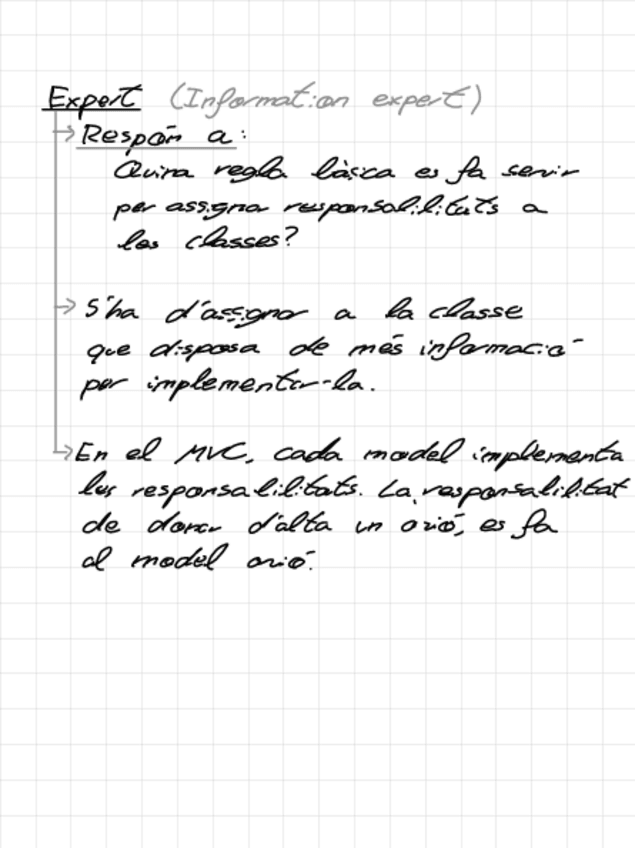 Expert (Information expert)
→ Respón a:
Quina regla bàsica es fa servir
per assignar responsabilitats a
les classes?
→ S'ha d'assignar a la classe
que disposa de més informació
per implementar-la.
→ En el MVC, cada model implementa
les responsabilitats. La responsabilitat
de donar d'alta un avió, es fa
al model avió.